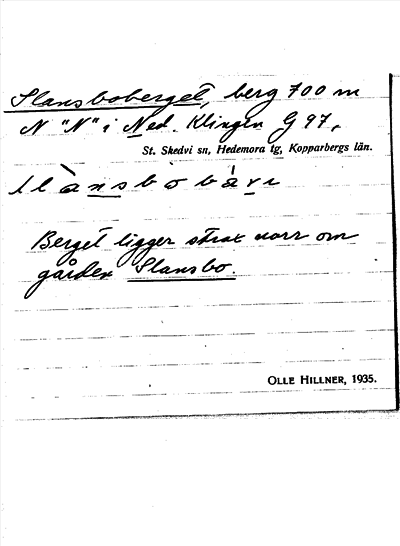 Slansboberget, berg 700 m
N "N" i Ned. Klingen G 97.
St. Skedvi sn, Hedemora tg, Kopparbergs län.
Berget ligger strax norr om
gården Slansbo.
OLLE HILLNER, 1935.